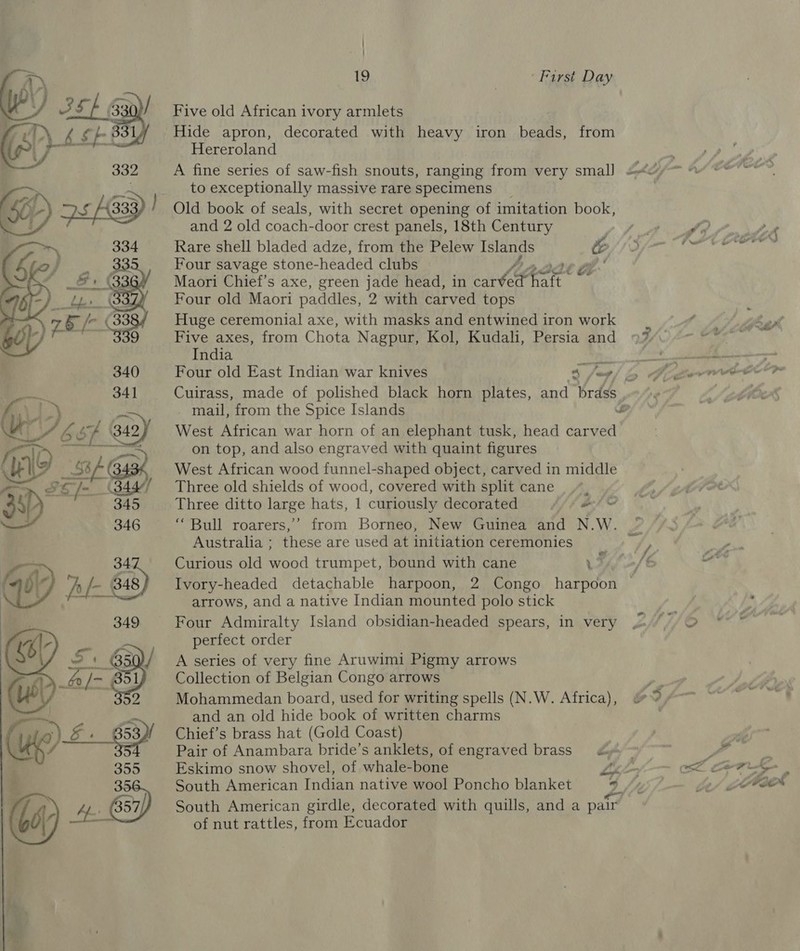 19 First Day
35/- 330 Five old African ivory armlets
331 Hide apron, decorated with heavy iron beads, from
Hereroland
332 A fine series of saw-fish snouts, ranging from very small
to exceptionally massive rare specimens
333 Old book of seals, with secret opening of imitation book,
and 2 old coach-door crest panels, 18th Century
334 Rare shell bladed adze, from the Pelew Islands
335 Four savage stone-headed clubs
336 Maori Chief's axe, green jade head, in carved haft
337 Four old Maori paddles, 2 with carved tops
338 Huge ceremonial axe, with masks and entwined iron work
339 Five axes, from Chota Nagpur, Kol, Kudali, Persia and
India
340 Four old East Indian war knives
341 Cuirass, made of polished black horn plates, and brass
mail, from the Spice Islands
342 West African war horn of an elephant tusk, head carved
on top, and also engraved with quaint figures
343 West African wood funnel-shaped object, carved in middle
344 Three old shields of wood, covered with split cane
345 Three ditto large hats, 1 curiously decorated
346 “Bull roarers,” from Borneo, New Guinea and N.W.
Australia ; these are used at initiation ceremonies
347 Curious old wood trumpet, bound with cane
348 Ivory-headed detachable harpoon, 2 Congo harpoon
arrows, and a native Indian mounted polo stick
349 Four Admiralty Island obsidian-headed spears, in very
perfect order
350 A series of very fine Aruwimi Pigmy arrows
351 Collection of Belgian Congo arrows
352 Mohammedan board, used for writing spells (N.W. Africa),
and an old hide book of written charms
353 Chief's brass hat (Gold Coast)
354 Pair of Anambara bride's anklets, of engraved brass
355 Eskimo snow shovel, of whale-bone
356 South American Indian native wool Poncho blanket
357 South American girdle, decorated with quills, and a pair
of nut rattles, from Ecuador